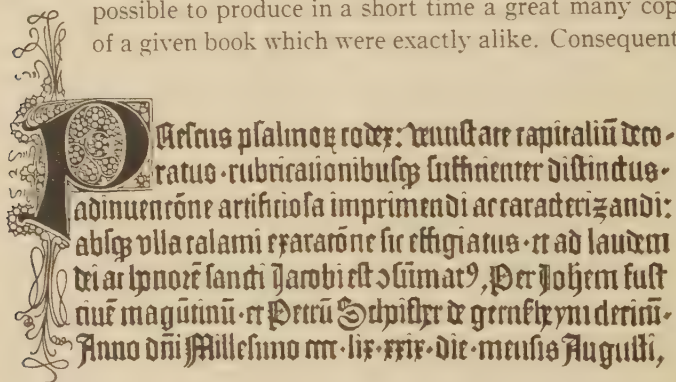 possible to produce in a short time a great many cop
of a given book which were exactly alike. Consequent
PResens psalmoꝝ codex: venustate capitaliū deco-
ratus · rubricationibusqꝫ sufficienter distinctus ·
adinuencōne artificiosa imprimendi ac caracterizandi:
absqꝫ vlla calami exaracōne sic effigiatus · et ad laudem
dei ac honorē sancti Jacobi est ↄsūmatꝰ, Per Johēm fust
ciuē magūtinū · et Petrū Schoiffher de gernsheym clericū ·
Anno dn̄i Millesimo cccc · lix · xxix · die · mensis Augusti,